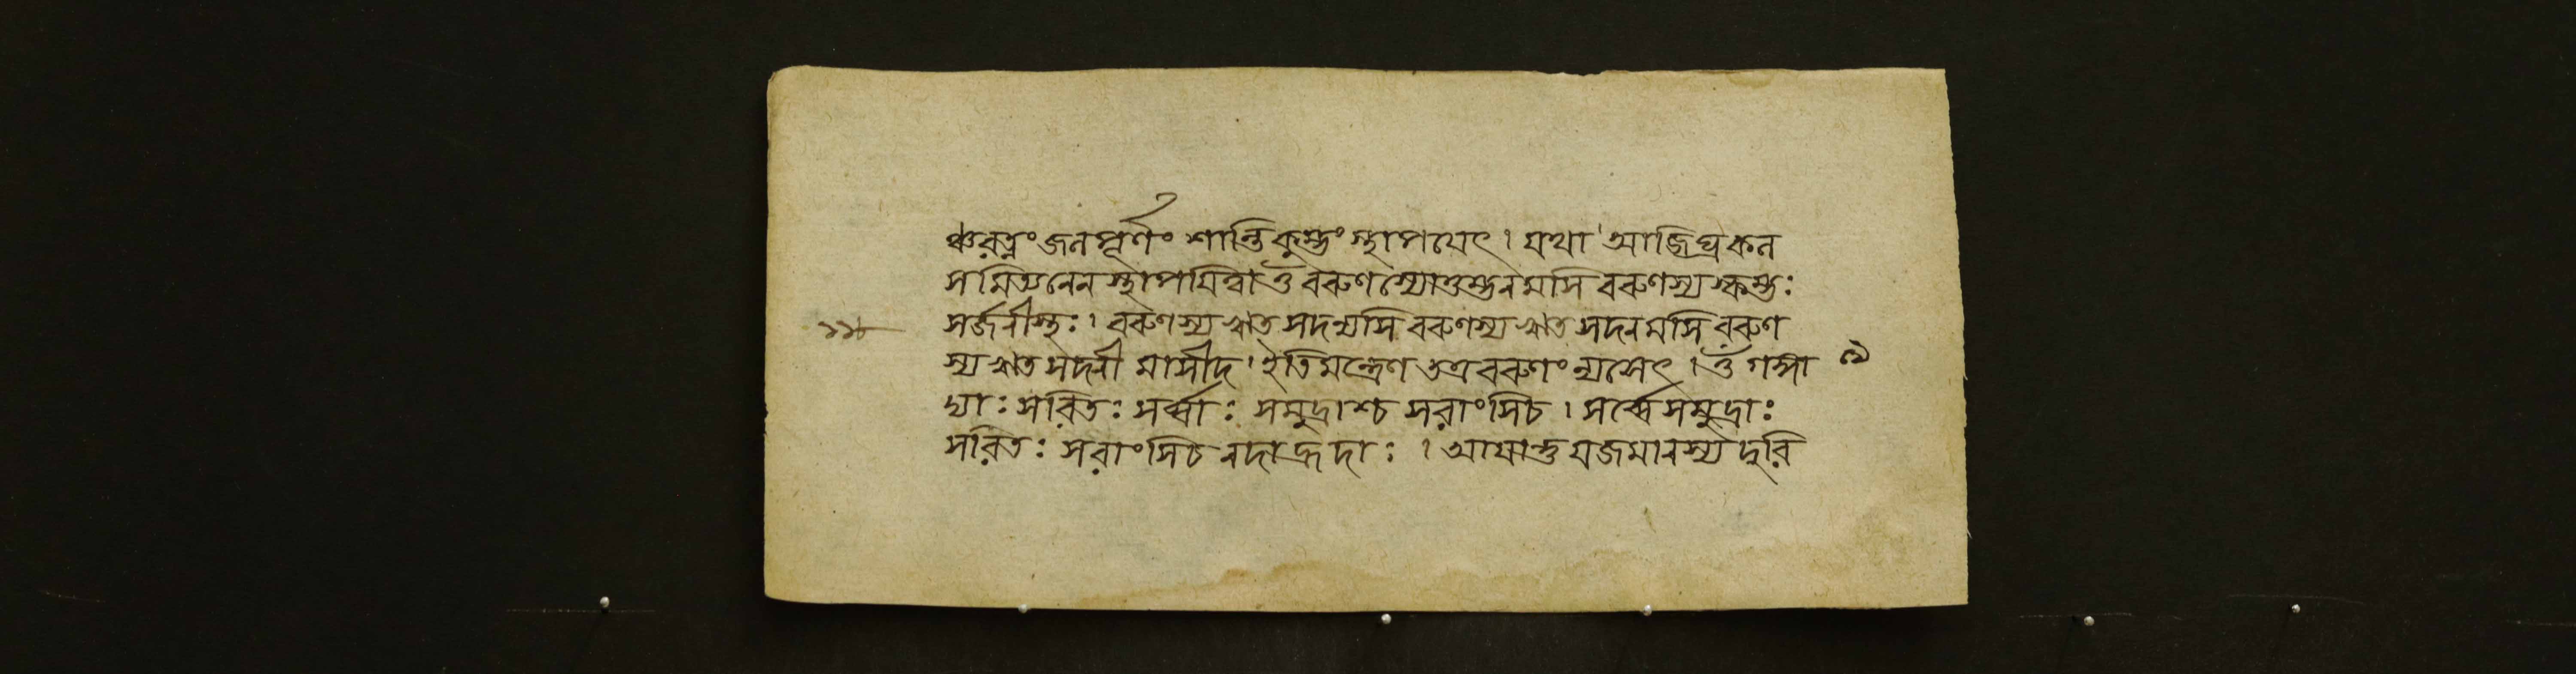 ঞ্চরত্নং জলপূর্ণং শান্তিকুম্ভং স্থাপয়েৎ। যথা আজিঘ্রকল
সমিত্যনেন স্থাপয়িত্বা ওঁ বরুণস্যোত্তম্ভনমসি বরুণস্যস্কম্ভ:
সর্জনীস্থ:। বরুণস্য ঋত সদন্যসি বরুণস্য ঋত সদনমসি বরুণ
স্য ঋত সদনী মাসীদ। ইতি মন্ত্রেণ তত্র বরুণং ন্যসেৎ। ওঁ গঙ্গা
দ্যা: সরিত: সর্ব্বা: সমুদ্রাশ্চ সরাংসি চ। সর্ব্বে সমুদ্রা:
সরিত: সরাংসি চ নদাহ্রদা:। আয়ান্তু যজমানস্য দুরি